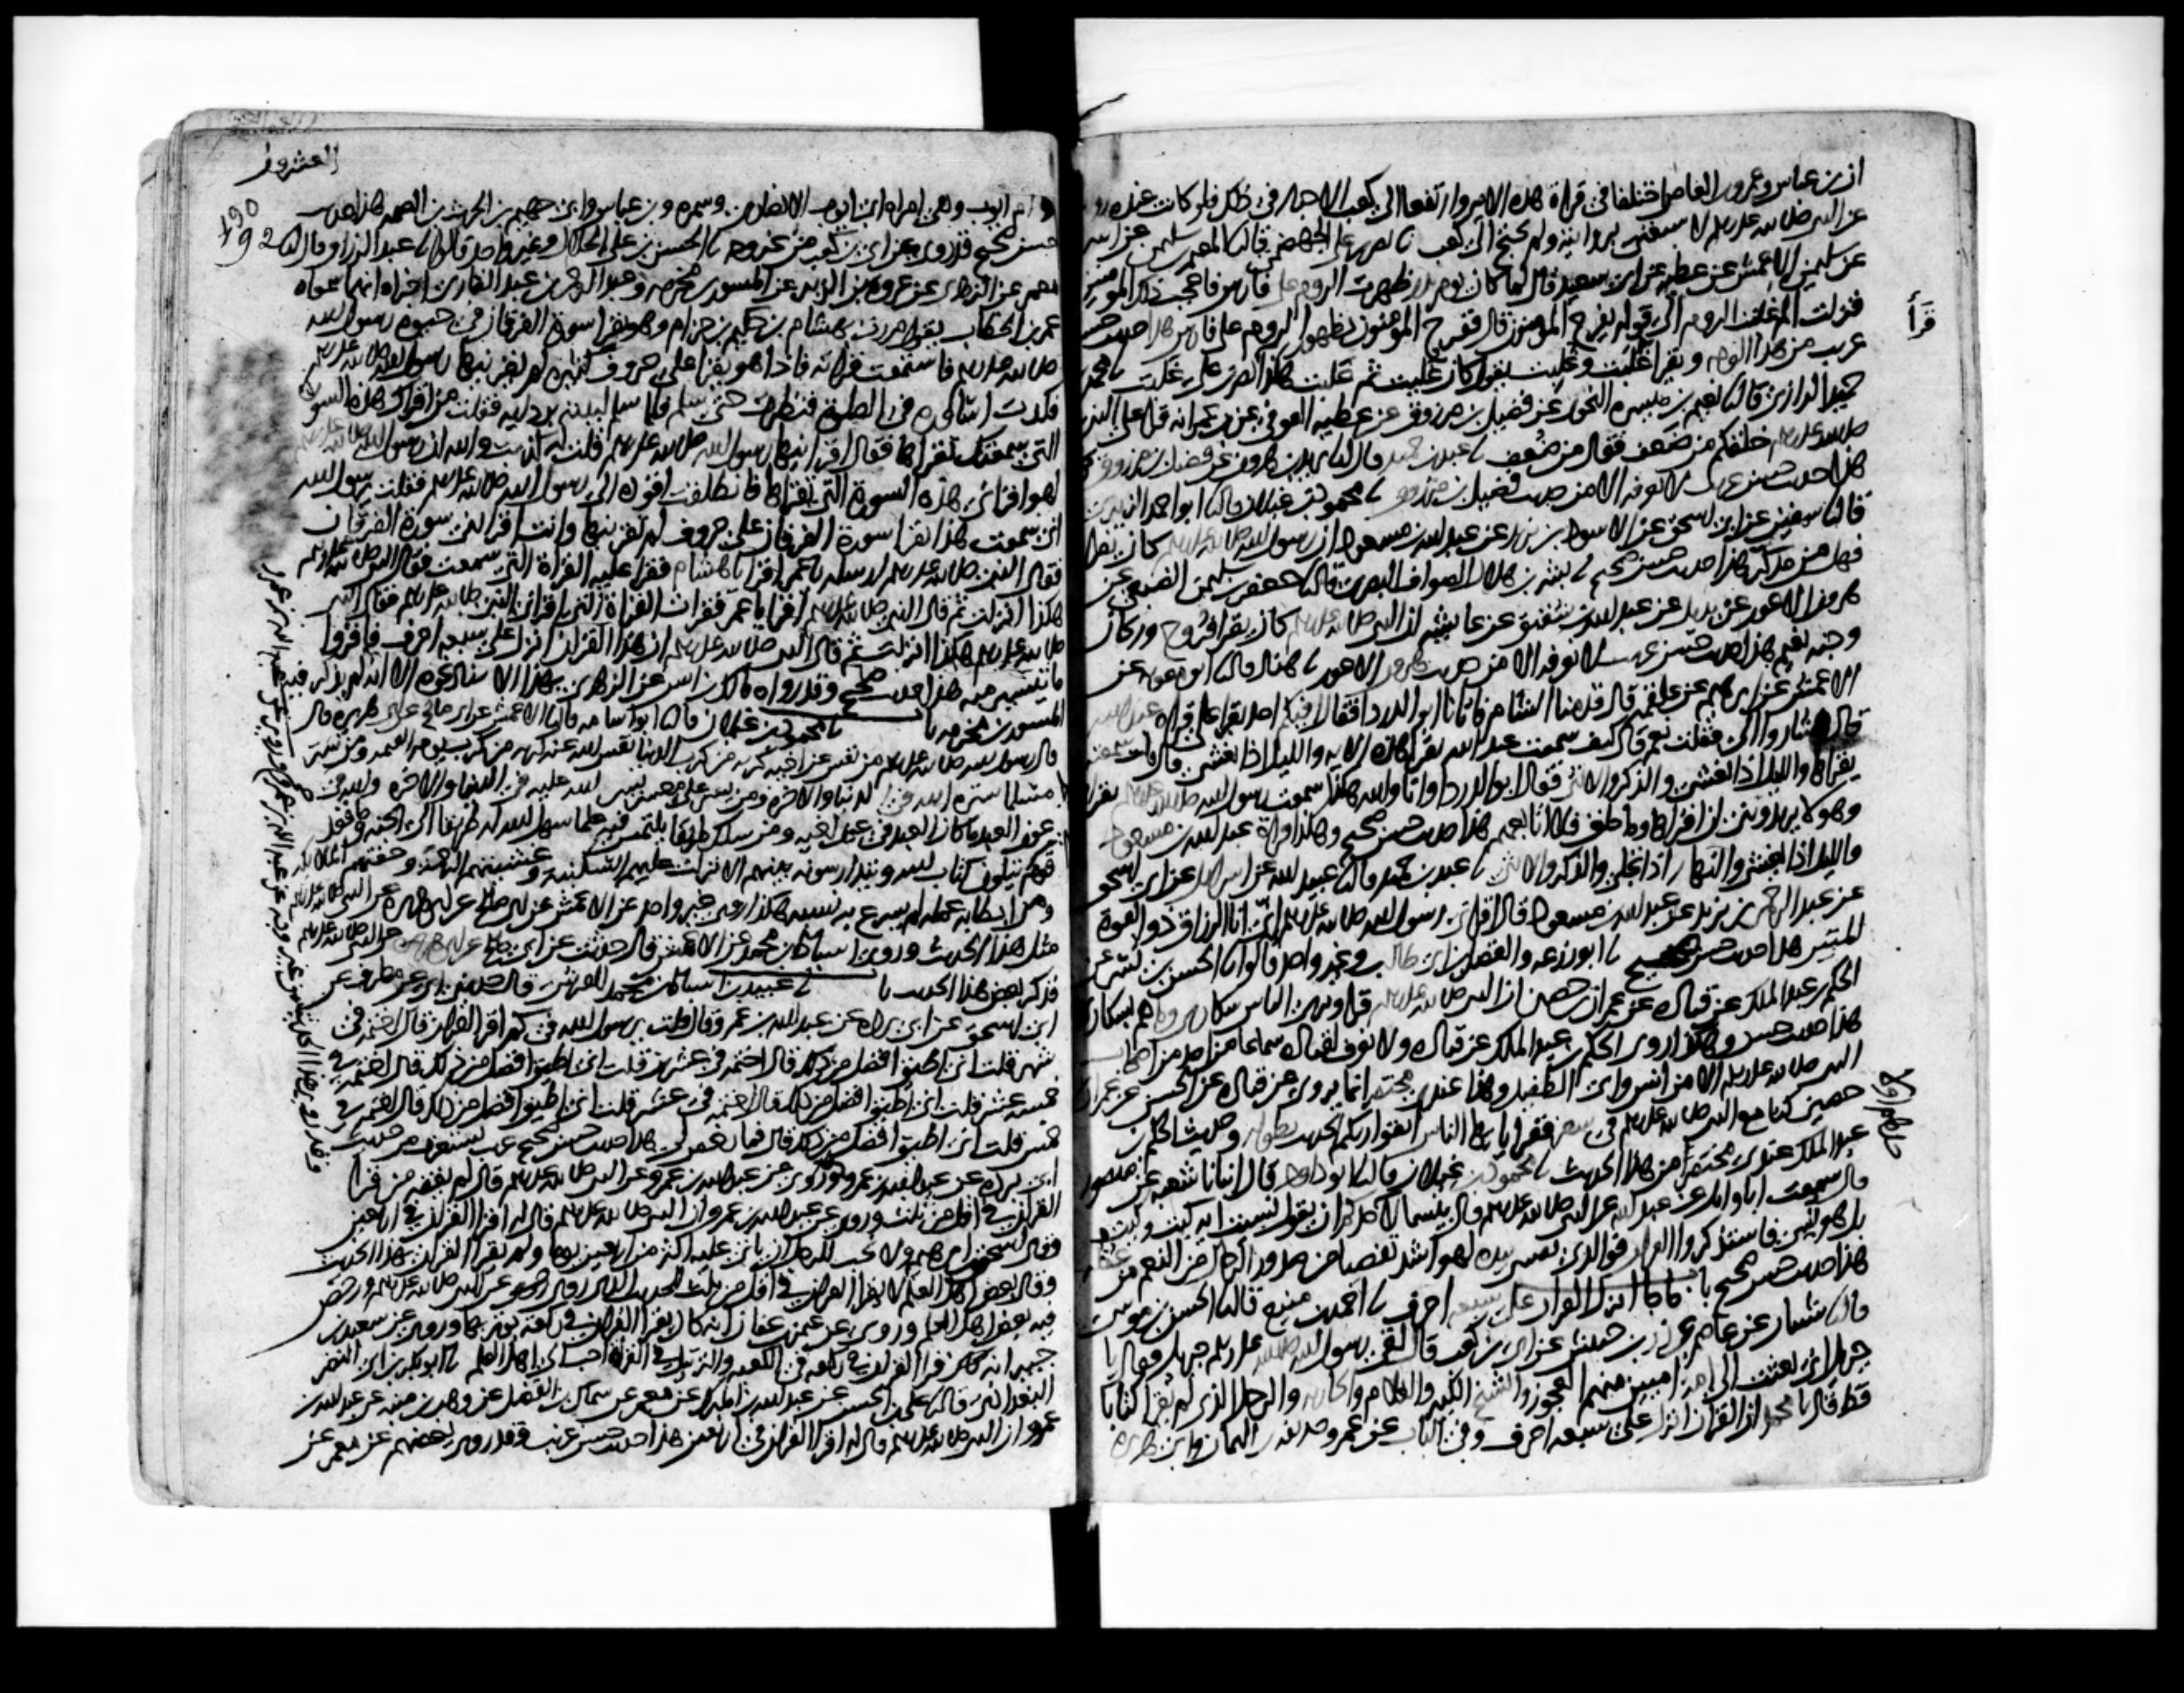 ان بن عباس وعمرو بن العاص اختلفا في قراة هذه الاية وارتفعا الى كعب الاحبار في ذلك فلو كانت عنده رواية
عن النبي صلى الله عليه وسلم لاستغنى بروايته ولم يحتج الى كعب نا نصر بن على الجهضمي قال نا المعتمر بن سليمن عن ابيه
عن سليمن الاعمش عن عطية عن ابي سعيد قال لما كان يوم بدر ظهرت الروم على فارس فاعجب ذلك المومنين
فنزلت الم غلبت الروم الى قوله يفرح المومنون قال ففرح المؤمنون بظهور الروم على فارس هذا حديث حسن
غريب من هذا الوجه ويقرا غلبت وغلبت يقول كانت غلبت ثم غلبت هكذا قرا نصر بن على غلبت نا محمد بن
حميد الرازي قال نا نعيم بن ميسرة النحوي عن فضيل بن مرزوق عن عطية العوفي عن بن عمر انه قرا على النبي
صلى الله عليه وسلم خلقكم من ضعف فقال من ضعف نا عبد بن حميد قال نا يزيد بن هرون عن فضيل بن مرزوق
هذا حديث حسن غريب لا نعرفه الا من حديث فضيل بن مرزوق نا محمود بن غيلان قال نا ابو احمد الزبيري
قال نا سفين عن ابي اسحق عن الاسود بن يزيد عن عبد الله بن مسعود ان رسول الله صلى الله عليه وسلم كان يقرا
فهل من مدكر هذا حديث حسن صحيح نا بشر بن هلال الصواف البصري قال نا جعفر بن سليمن الضبعي عن
هرون الاعور عن بديل عن عبد الله بن شقيق عن عايشة ان النبي صلى الله عليه وسلم كان يقرا فروح وريحان
وجنة نعيم هذا حديث حسن غريب لا نعرفه الا من حديث هرون الاعور نا هناد قال نا ابو معوية عن
الاعمش عن ابراهيم عن علقمة قال قدمنا الشام فاتانا ابو الدردا فقال افيكم احد يقرا على قراة عبد الله
قال فاشاروا الي فقلت نعم قال كيف سمعت عبد الله يقرا هذه الاية والليل اذا يغشى قال قلت سمعته
يقراها والليل اذا يغشى والذكر والانثى فقال ابو الدردا وانا والله هكذا سمعت رسول الله صلى الله عليه وسلم يقراها
وهولا يريدونني ان اقراها وما خلق فلا اتابعهم هذا حديث حسن صحيح وهكذا قراة عبد الله بن مسعود
والليل اذا يغشى والنهار اذا تجلى والذكر والانثى نا عبد بن حميد قال نا عبيد الله عن اسرائيل عن ابي اسحق
عن عبد الرحمن بن يزيد عن عبد الله بن مسعود قال اقراني رسول الله صلى الله عليه وسلم اني انا الرزاق ذو القوة
المتين هذا حديث حسن صحيح نا ابو زرعة والفضل بن ابي طالب وغير واحد قالوا نا الحسن بن بشر عن
الحكم بن عبد الملك عن قتادة عن عمران بن حصين ان النبي صلى الله عليه وسلم قرا وترى الناس سكارى وما هم بسكارى
هذا حديث حسن وهكذا روى الحكم بن عبد الملك عن قتادة ولا نعرف لقتادة سماعا من احد من اصحاب
النبي صلى الله عليه وسلم الا من انس وابي الطفيل وهذا عندي مختصر انما يروى عن قتادة عن الحسن عن عمران بن
حصين كنا مع النبي صلى الله عليه وسلم في سفر فقرا يا ايها الناس اتقوا ربكم الحديث بطوله وحديث الحكم بن
عبد الملك عندي مختصرا من هذا الحديث نا محمود بن غيلان قال نا ابو داود قال انبانا شعبة عن منصور
قال سمعت ابا وايل عن عبد الله عن النبي صلى الله عليه وسلم قال بيسما لاحدكم ان يقول نسيت اية كيت وكيت
بل هو نسي فاستذكروا القران فوالذي نفسي بيده لهو اشد تفصيا من صدور الرجال من النعم من عقله
هذا حديث حسن صحيح باب ما جا انزل القران على سبعة احرف نا احمد بن منيع قال نا الحسن بن موسى
قال نا شيبان عن عاصم عن زر بن حبيش عن ابي بن كعب قال لقي رسول الله صلى الله عليه وسلم جبريل فقال يا
جبريل اني بعثت الى امة اميين منهم العجوز والشيخ الكبير والغلام والجارية والرجل الذي لم يقرا كتابا
قط قال يا محمد ان القران انزل على سبعة احرف وفي الباب عن عمر وحذيفة بن اليمان وابي هريرة
قرأ
العشرون
190
192
وام ايوب وهي امراة ابي ايوب الانصاري وسمرة وبن عباس وابي جهيم بن الحرث بن الصمة هذا حديث
حسن صحيح قد روي عن ابي بن كعب من غير وجه نا الحسن بن على الخلال وغير واحد قالوا نا عبد الرزاق قال انا
معمر عن الزهري عن عروة بن الزبير عن المسور بن مخرمة وعبد الرحمن بن عبد القاري اخبراه انهما سمعاه
عمر بن الخطاب يقول مررت بهشام بن حكيم بن حزام وهو يقرا سورة الفرقان في حيوة رسول الله
صلى الله عليه وسلم فاستمعت قراته فاذا هو يقرا على حروف كثيرة لم يقرئنيها رسول الله صلى الله عليه وسلم
فكدت اساوره في الصلوة فنظرت حتى سلم فلما سلم لببته بردايه فقلت من اقراك هذه السورة
التي سمعتك تقراها فقال اقرانيها رسول الله صلى الله عليه وسلم قلت له كذبت والله ان رسول الله صلى الله عليه وسلم
لهو اقراني هذه السورة التي تقراها فانطلقت اقوده الى رسول الله صلى الله عليه وسلم فقلت يرسول الله
اني سمعت هذا يقرا سورة الفرقان على حروف لم تقرئنيها وانت اقراتني سورة الفرقان
فقال النبي صلى الله عليه وسلم ارسله يا عمر اقرا يا هشام فقرا عليه القراة التي سمعت فقال النبي صلى الله عليه وسلم
هكذا انزلت ثم قال النبي صلى الله عليه وسلم اقرا يا عمر فقرات القراة التي اقراني النبي صلى الله عليه وسلم فقال النبي
صلى الله عليه وسلم هكذا انزلت ثم قال النبي صلى الله عليه وسلم ان هذا القران انزل على سبعة احرف فاقروا
ما تيسر منه هذا حديث صحيح وقد رواه مالك بن انس عن الزهري بهذا الاسناد نحوه الا انه لم يذكر فيه
المسور بن مخرمة باب نا محمود بن غيلان قال نا ابو اسامة قال نا الاعمش عن ابي صالح عن ابي هريرة قال
قال رسول الله صلى الله عليه وسلم من نفس عن اخيه كربة من كرب الدنيا نفس الله عنه كربة من كرب يوم القيمة ومن ستر
مسلما ستره الله في الدنيا والاخرة ومن يسر على معسر يسر الله عليه في الدنيا والاخرة والله في
عون العبد ما كان العبد في عون اخيه ومن سلك طريقا يلتمس فيه علما سهل الله له طريقا الى الجنة وما قعد
قوم يتلون كتاب الله ويتدارسونه بينهم الا نزلت عليهم السكينة وغشيتهم الرحمة وحفتهم الملائكة
ومن ابطا به عمله لم يسرع به نسبه هكذا روى غير واحد عن الاعمش عن ابي صالح عن ابي هريرة عن النبي صلى الله عليه وسلم
مثل هذا الحديث وروى اسباط بن محمد عن الاعمش قال حدثت عن ابي صالح عن ابي هريرة عن النبي صلى الله عليه وسلم
فذكر بعض هذا الحديث باب نا عبيد بن اسباط بن محمد القرشي قال حدثني ابي عن مطرف عن
ابي اسحق عن ابي بردة عن عبد الله بن عمر وقال قلت يرسول الله في كم اقرا القران قال اختمه في
شهر قلت اني اطيق افضل من ذلك قال اختمه في عشرين قلت اني اطيق افضل من ذلك قال اختمه في
خمسة عشر قلت اني اطيق افضل من ذلك قال اختمه في عشر قلت اني اطيق افضل من ذلك قال اختمه في
خمس قلت اني اطيق افضل من ذلك قال فما رخص لي هذا حديث حسن صحيح غريب يستغرب من حديث
ابي بردة عن عبد الله بن عمرو وروي عن عبد الله بن عمرو عن النبي صلى الله عليه وسلم قال لم يفقه من قرا
القران في اقل من ثلث وروي عن عبد الله بن عمرو ان النبي صلى الله عليه وسلم قال له اقرا القران في اربعين
وقال اسحق بن ابرهيم ولا نحب للرجل ان ياتي عليه اكثر من اربعين يوما ولم يقرا القران لهذا الحديث
وقال بعض اهل العلم لا يقرا القران في اقل من ثلث للحديث الذي روي عن النبي صلى الله عليه وسلم ورخص
فيه بعض اهل العلم وروي عن عثمن بن عفان انه كان يقرا القران في ركعة يوتر بها وروي عن سعيد بن
جبير انه قرا القران في ركعة في الكعبة والترتيل في القراة احب الى اهل العلم نا ابو بكر بن ابي النضر
البغدادي قال نا على بن الحسن عن عبد الله بن المبارك عن معمر عن سماك بن الفضل عن وهب بن منبه عن عبد الله بن
عمرو ان النبي صلى الله عليه وسلم قال له اقرا القران في اربعين هذا حديث حسن غريب وقد روى بعضهم عن معمر عن
وقد روي هذا الحديث من غير وجه عن عبد الله بن عمرو